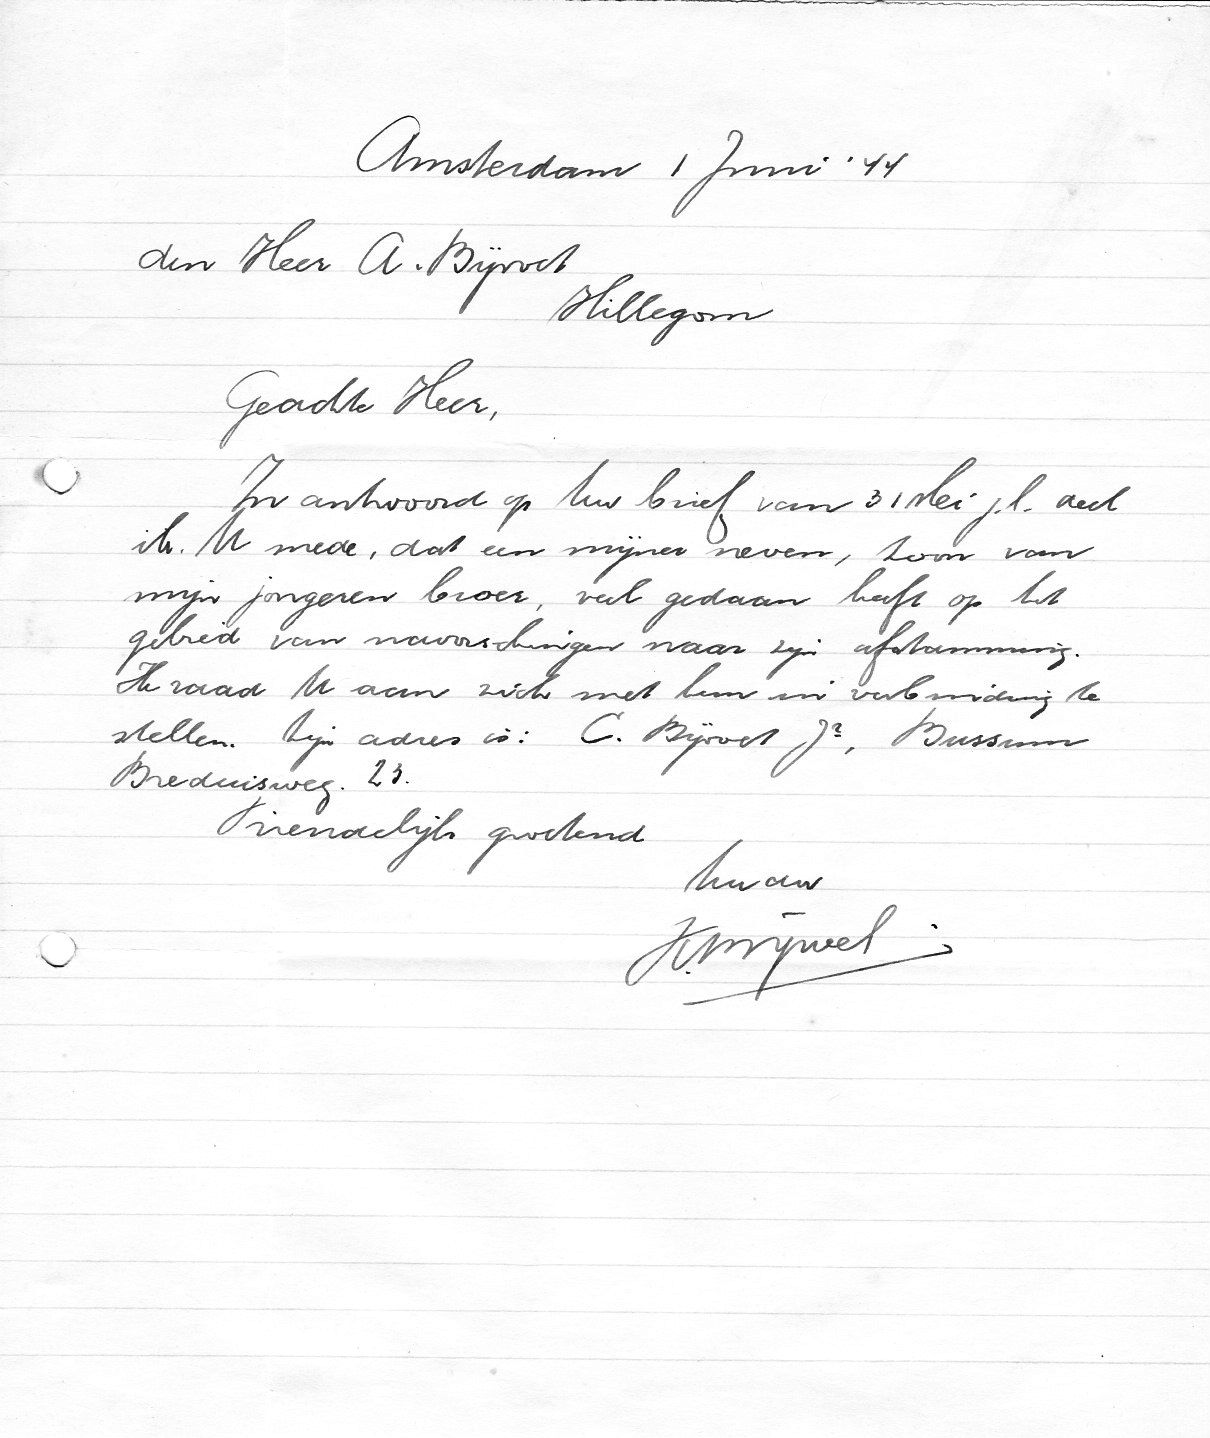 Amsterdam 1 Juni '44
den Heer A. Bijvoet
Hillegom
Geachte Heer,
In antwoord op Uw brief van 31 Mei j.l. deel
ik U mede, dat een mijner neven, zoon van
mijn jongeren broer, veel gedaan heeft op het
gebied van navorschingen naar zijn afstamming.
Ik raad U aan zich met hem in verbinding te
stellen. Zijn adres is: C. Bijvoet Jr, Bussum
Brediusweg. 23.
Vriendelijk groetend
Uw dw
Bijvoet